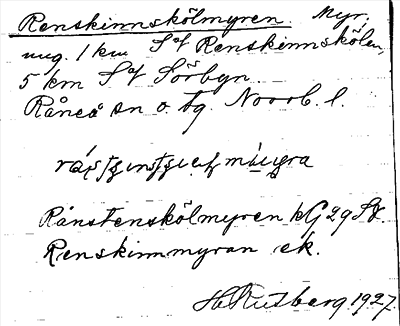 Renskinnskölmyren. Myr,
ung. 1 km S of Renskinnskölen,
5 km S of Sörbyn.
Råneå sn o. tg. Norrb. l.
Rånstenskölmyren kG 29 SV.
Renskinnmyran ek.
H. Rutberg 1927.